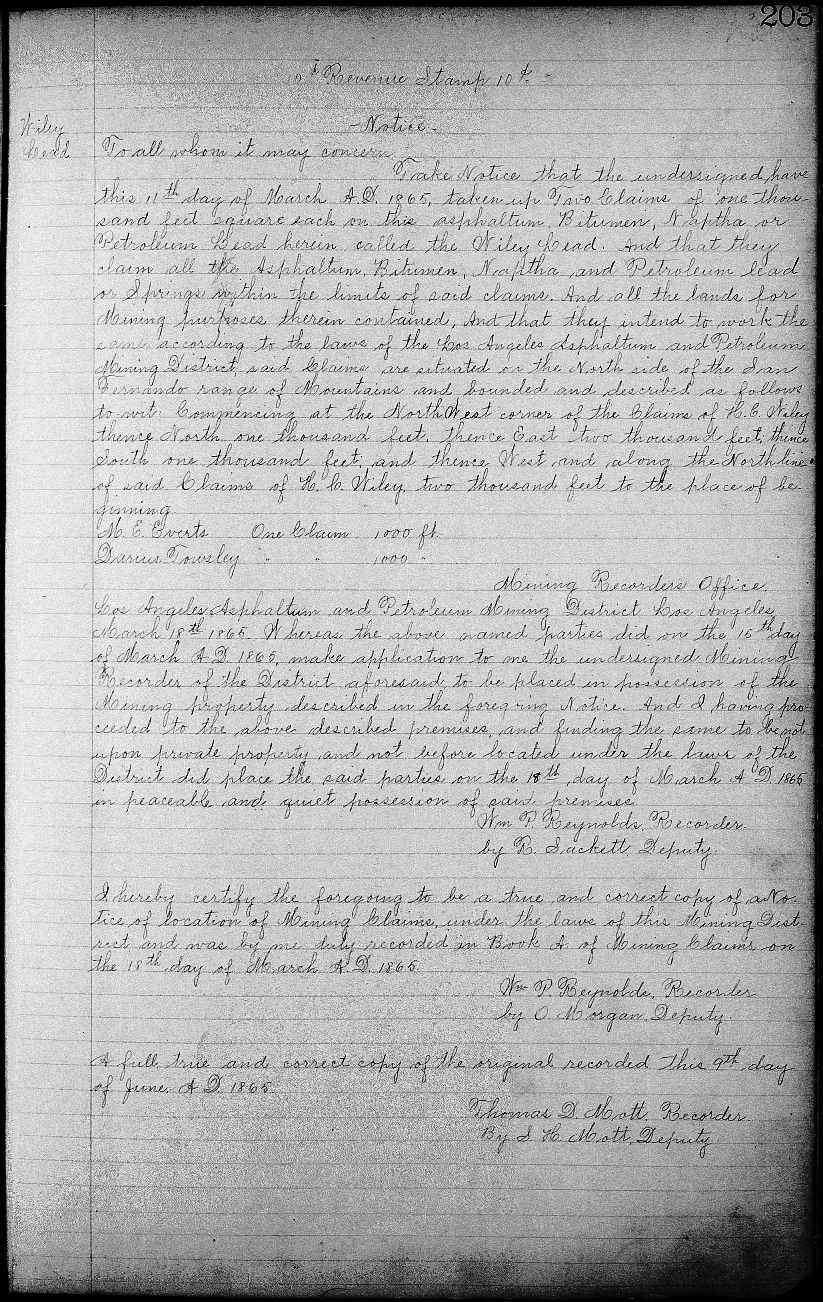 203
10¢ Revenue Stamp 10¢
- Notice -
Wiley
Lead
To all whom it may concern
Take Notice that the undersigned, have
this 11th day of March A.D. 1865, taken up Two Claims of one thou-
sand feet square each on this asphaltum, Bitumen, Naptha or
Petroleum Lead herein called the Wiley Lead. And that they
claim all the Asphaltum, Bitumen, Naptha and Petroleum lead
or Springs within the limits of said claims. And all the lands for
Mining purposes therein contained, And that they intend to work the
same according to the laws of the Los Angeles Asphaltum and Petroleum
Mining District, said Claims are situated on the North side of the San
Fernando range of Mountains and bounded and described as follows
to wit: Commencing at the North West corner of the Claims of H. C. Wiley
thence North one thousand feet, thence East two thousand feet, thence
South one thousand feet, and thence West and along the North line
of said Claims of H. C. Wiley, two thousand feet to the place of be-
ginning
M. E. Everts One Claim 1000 ft.
Darius Towsley " " 1000 "
Mining Recorders Office.
Los Angeles Asphaltum and Petroleum Mining District Los Angeles
March 18th 1865. Whereas the above named parties did on the 15th day
of March A.D. 1865, make application to me the undersigned Mining
Recorder of the District aforesaid, to be placed in possession of the
Mining property described in the foregoing Notice. And I having pro-
ceeded to the above described premises, and finding the same to be not
upon private property and not before located under the laws of the
District did place the said parties on the 18th day of March A.D. 1865
in peaceable and quiet possession of said premises
Wm P. Reynolds, Recorder.
by R. Sackett, Deputy.
I hereby certify the foregoing to be a true and correct copy of a No-
tice of location of Mining Claims, under the laws of this Mining Dist-
rict and was by me duly recorded in Book A of Mining Claims on
the 18th day of March A.D. 1865.
Wm P. Reynolds, Recorder
by O. Morgan, Deputy.
A full, true and correct copy of the original recorded this 9th day
of June, A.D. 1865.
Thomas D. Mott. Recorder.
By S. H. Mott, Deputy